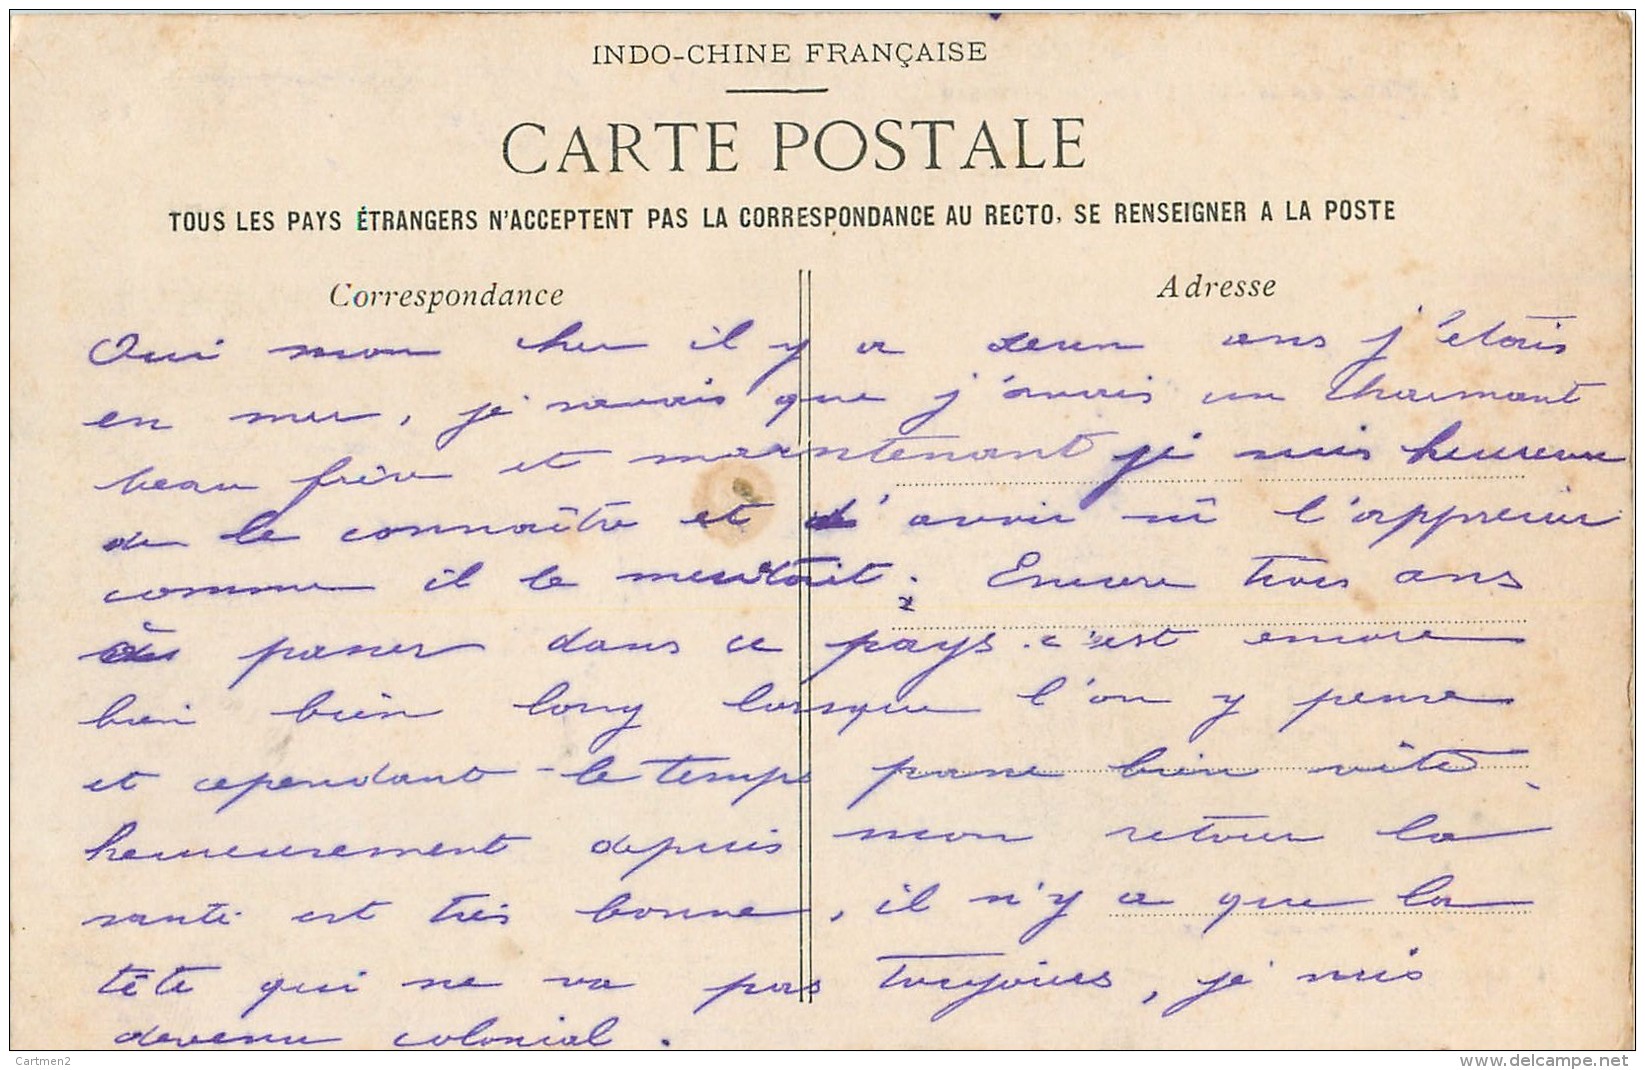 INDO-CHINE FRANÇAISE
CARTE POSTALE
TOUS LES PAYS ÉTRANGERS N'ACCEPTENT PAS LA CORRESPONDANCE AU RECTO, SE RENSEIGNER A LA POSTE
Correspondance
Adresse
Oui mon cher il y a deux ans j'étais
en mer, je savais que j'avais un charmant
beau frère et maintenant je suis heureux
de le connaître et d'avoir sû l'apprécier
comme il le méritait. Encore trois ans
à passer dans ce pays. c'est encore
bien bien long lorsque l'on y pense
et cependant le temps passe bien vite.
heureusement depuis mon retour la
santé est très bonne, il n'y a que la
tête qui ne va pas toujours, je suis
devenu colonial.
Cartmen2
delcampe.net